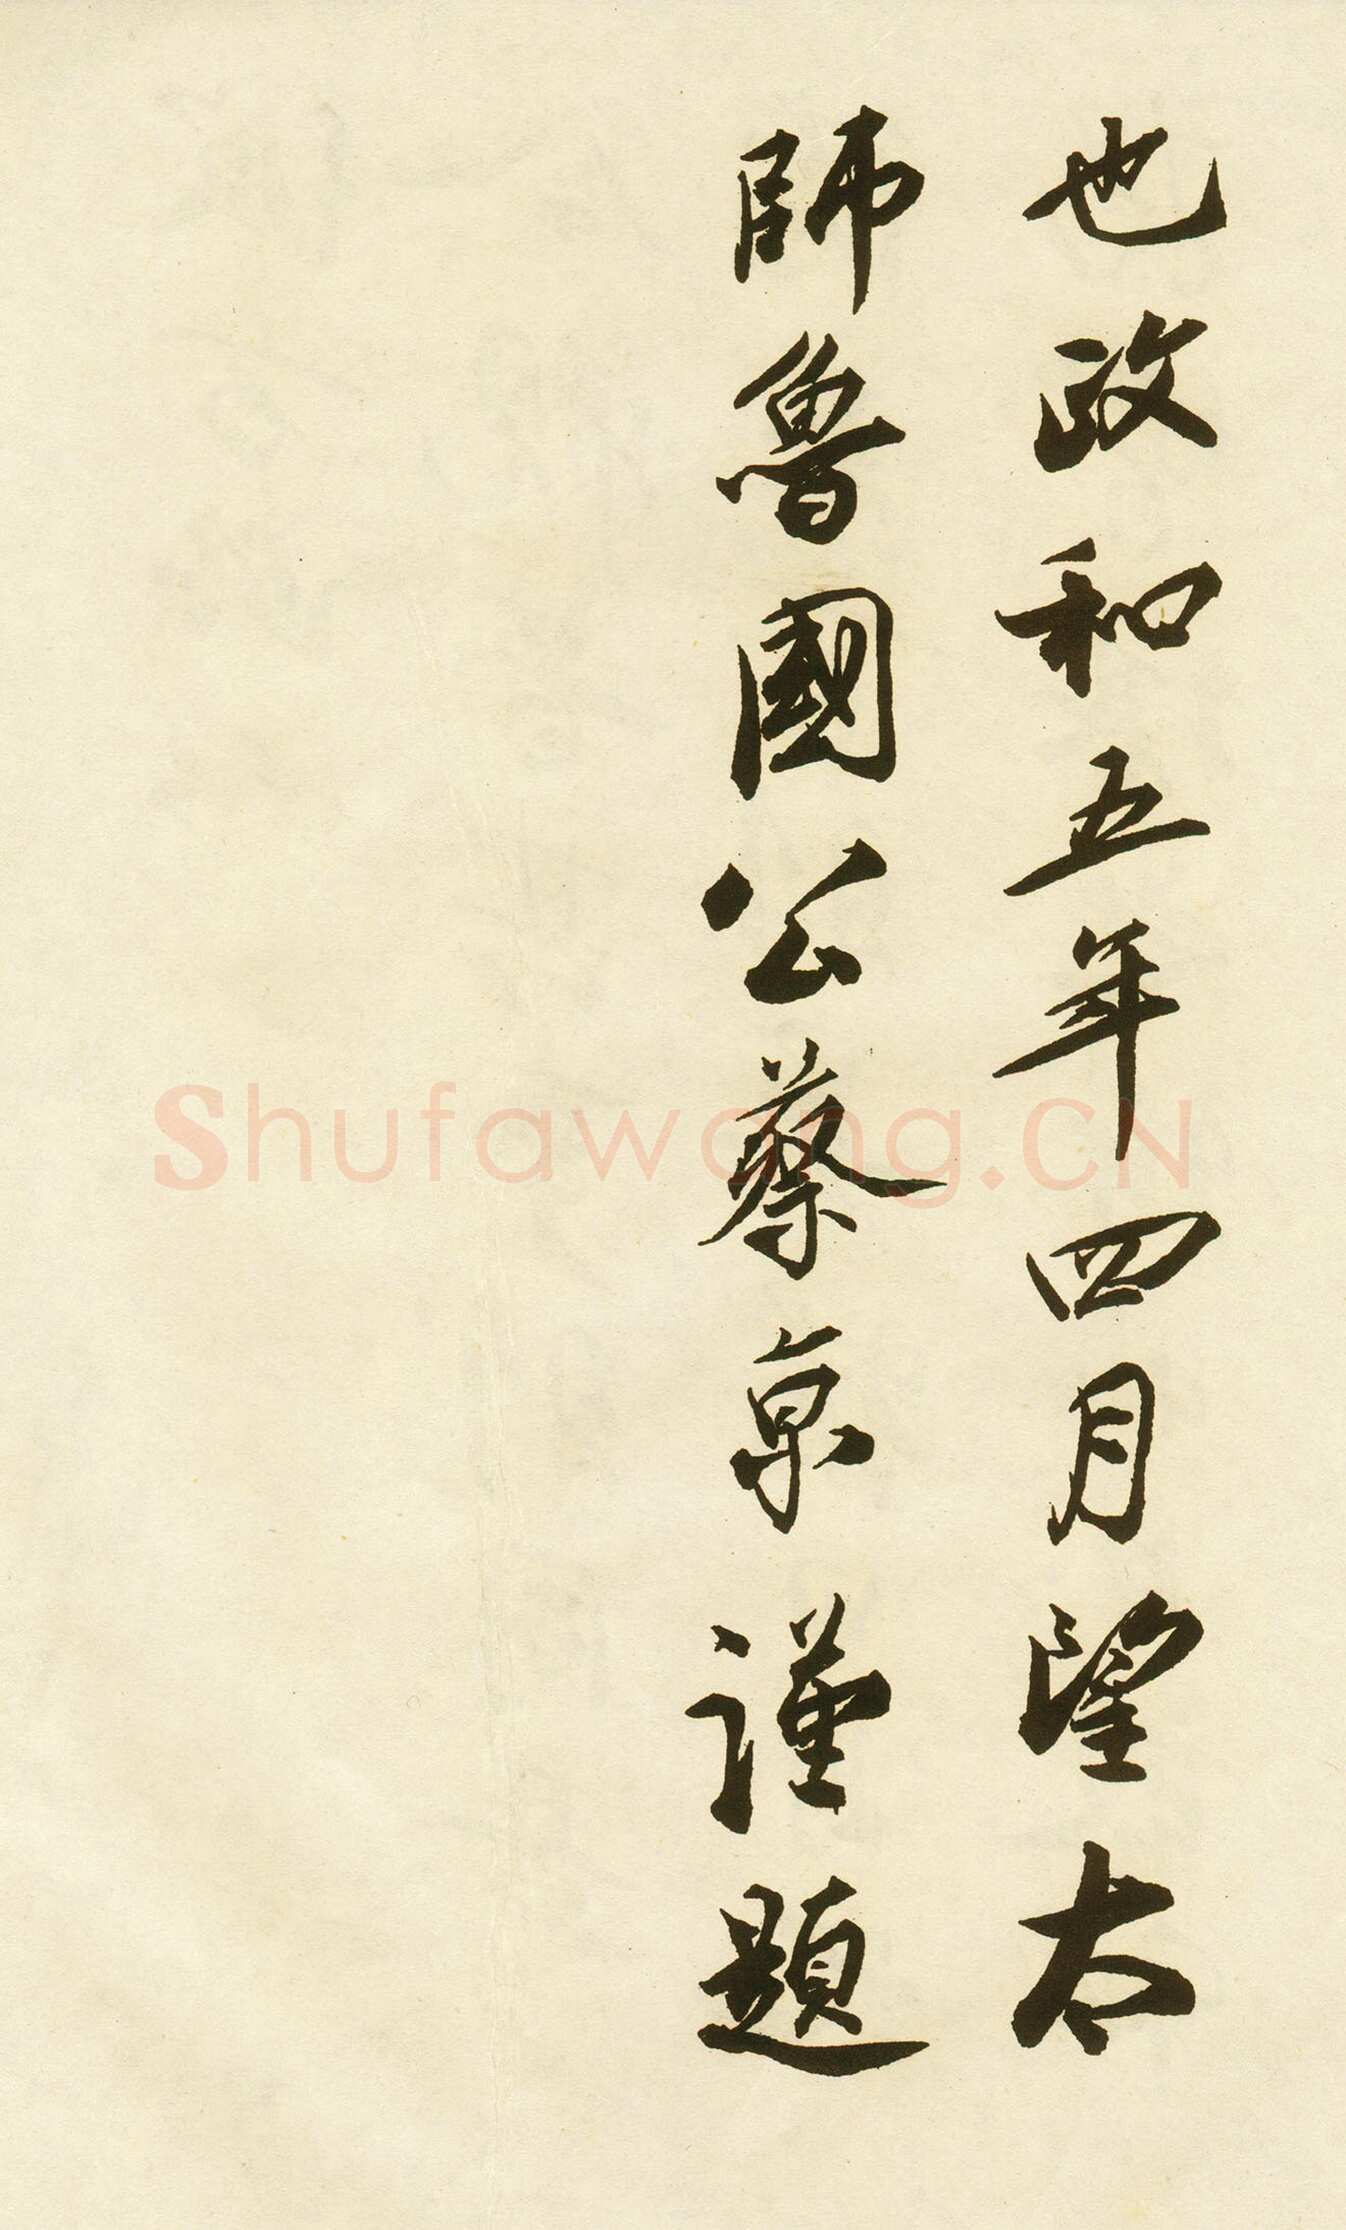 也政和五年四月望太
師魯國公蔡京謹題
Shufawang.CN